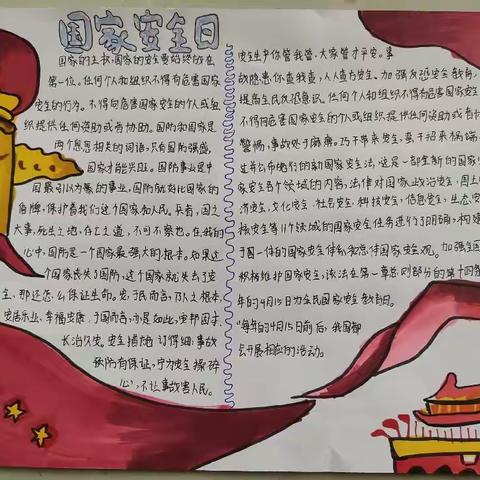 国家安全日
国家的主权,国家的安全要始终放在
第一位。任何个人和组织不得有危害国家
安全的行为。不得向危害国家安全的个人或组
织提供任何资助或者协助。国防和国家是
两个息息相关的词语,只有国防强盛,
国家才能兴旺。国防事业是中
国最引以为豪的事业,国防就好比国家的
盾牌,保护着我们这个国家和人民。兵者,国之
大事,死生之地,存亡之道,不可不察也。在我的
心中,国防是一个国家最强大的根本。如果这
个国家丧失了国防,这个国家就失去了安
全,那还怎么保证生命。安,于民而言,乃人之根本,
安居乐业,幸福安康,于国而言,亦是如此,安邦固本,
长治久安。安全措施订得细,事故
预防有保证,宁为安全操碎
心,不让事故害人民。
安全生产你管我管,大家管才平安。事
故隐患你查我查,人人查方安。加强反恐安全教育,
提高全民反恐意识。任何个人和组织不得有危害国家安全
不得向危害国家安全的个人或组织提供任何资助或者协
警惕,事故处于麻痹。巧干带来安全,蛮干招来祸端
过并公布施行的新国家安全法,这是一部全新的国家
家安全各个领域的内容,法律对国家政治安全,国土
济安全,文化安全,社会安全,科技安全,信息安全,生态安
核安全等11个领域的国家安全任务进行了明确,构建
于国一体的国家安全体系和总体国家安全观。加强全国
积极维护国家安全,该法在第一章总则部分的第十四
年的4月15日为全民国家安全教育日。
"每年的4月15日前后,我国都
会开展相应的活动。